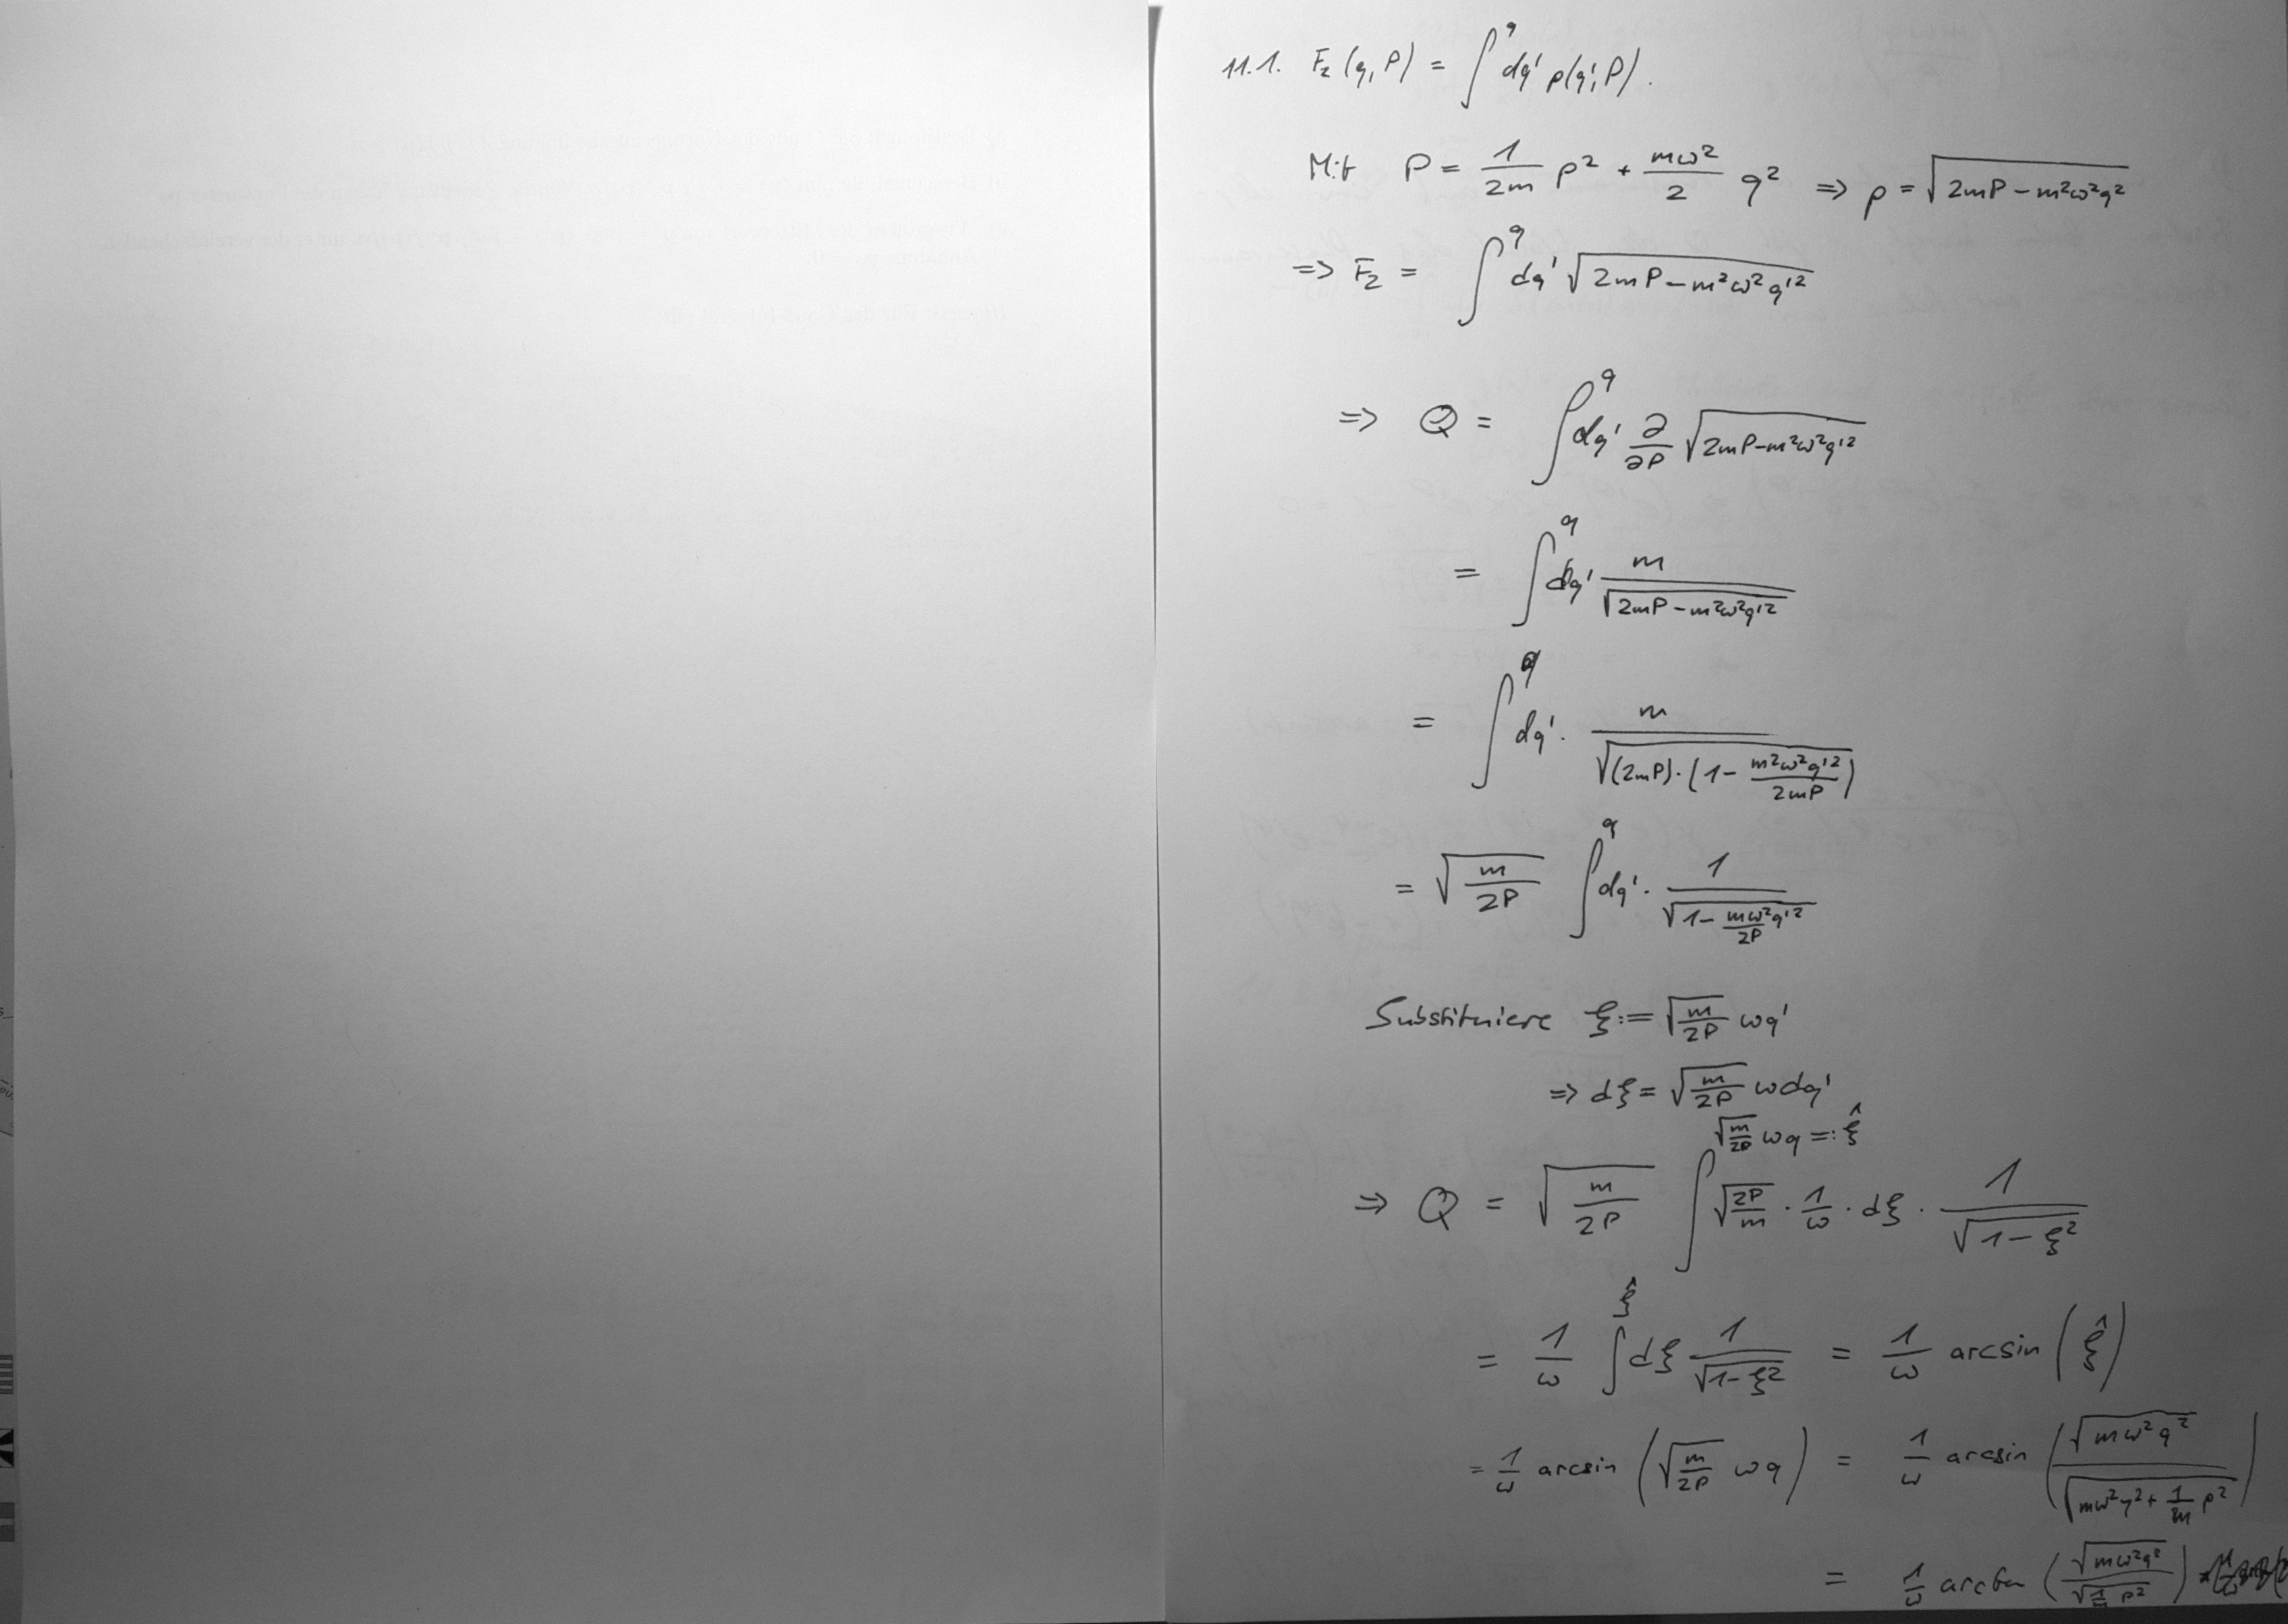 11.1. F₂(q,P) = ∫^q dq' p(q',P).
Mit P = 1/(2m) p² + mω²/2 q² ⇒ p = √(2mP − m²ω²q²)
⇒ F₂ = ∫^q dq' √(2mP − m²ω²q'²)
⇒ Q = ∫^q dq' ∂/∂P √(2mP − m²ω²q'²)
= ∫^q dq' m/√(2mP − m²ω²q'²)
= ∫^q dq' · m/√((2mP)·(1 − m²ω²q'²/(2mP)))
= √(m/2P) ∫^q dq' · 1/√(1 − mω²q'²/2P)
Substituiere ξ := √(m/2P) ωq'
⇒ dξ = √(m/2P) ωdq'
⇒ Q = √(m/2P) ∫^(√(m/2P) ωq =: ξ̂) √(2P/m) · 1/ω · dξ · 1/√(1 − ξ²)
= 1/ω ∫^ξ̂ dξ 1/√(1−ξ²) = 1/ω arcsin(ξ̂)
= 1/ω arcsin(√(m/2P) ωq) = 1/ω arcsin(√(mω²q²)/√(mω²q² + 1/m p²))
= 1/ω arctan(√(mω²q²)/√(1/m p²))